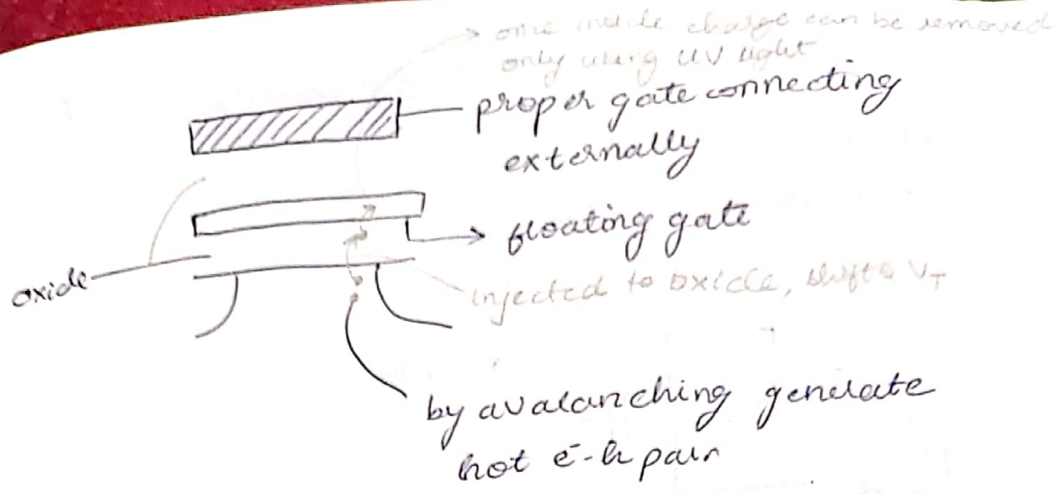 once inside charge can be removed
only using UV light
proper gate connecting
externally
floating gate
oxide
injected to oxide, shifts V_T
by avalanching generate
hot e⁻-h pair